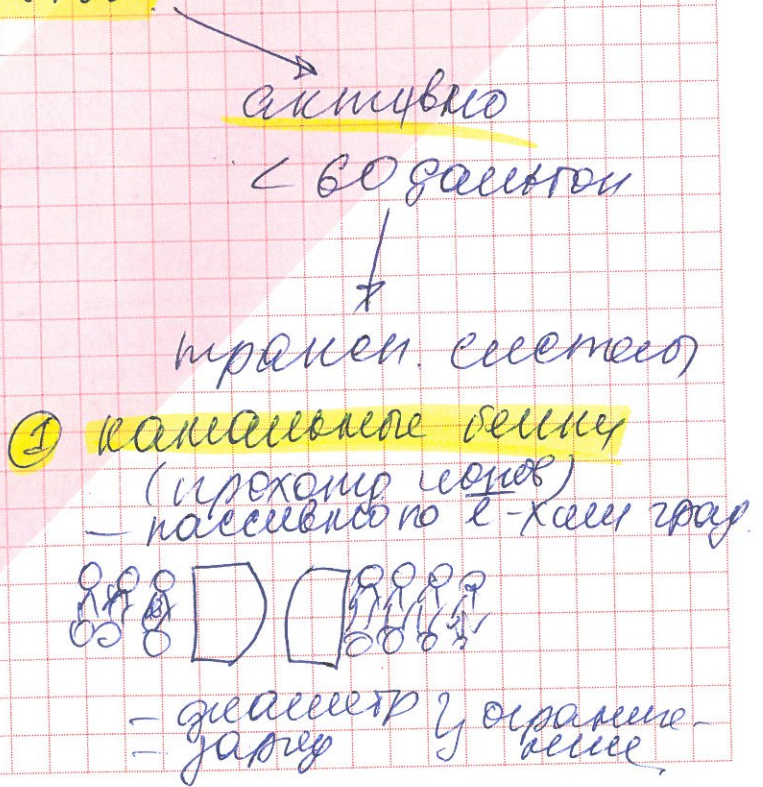 активно
< 60 дальтон
трансп. системы
① канальные белки
(проход ионов)
— пассивно по е-хим град.
– диаметр } ограниче-
– заряд ние